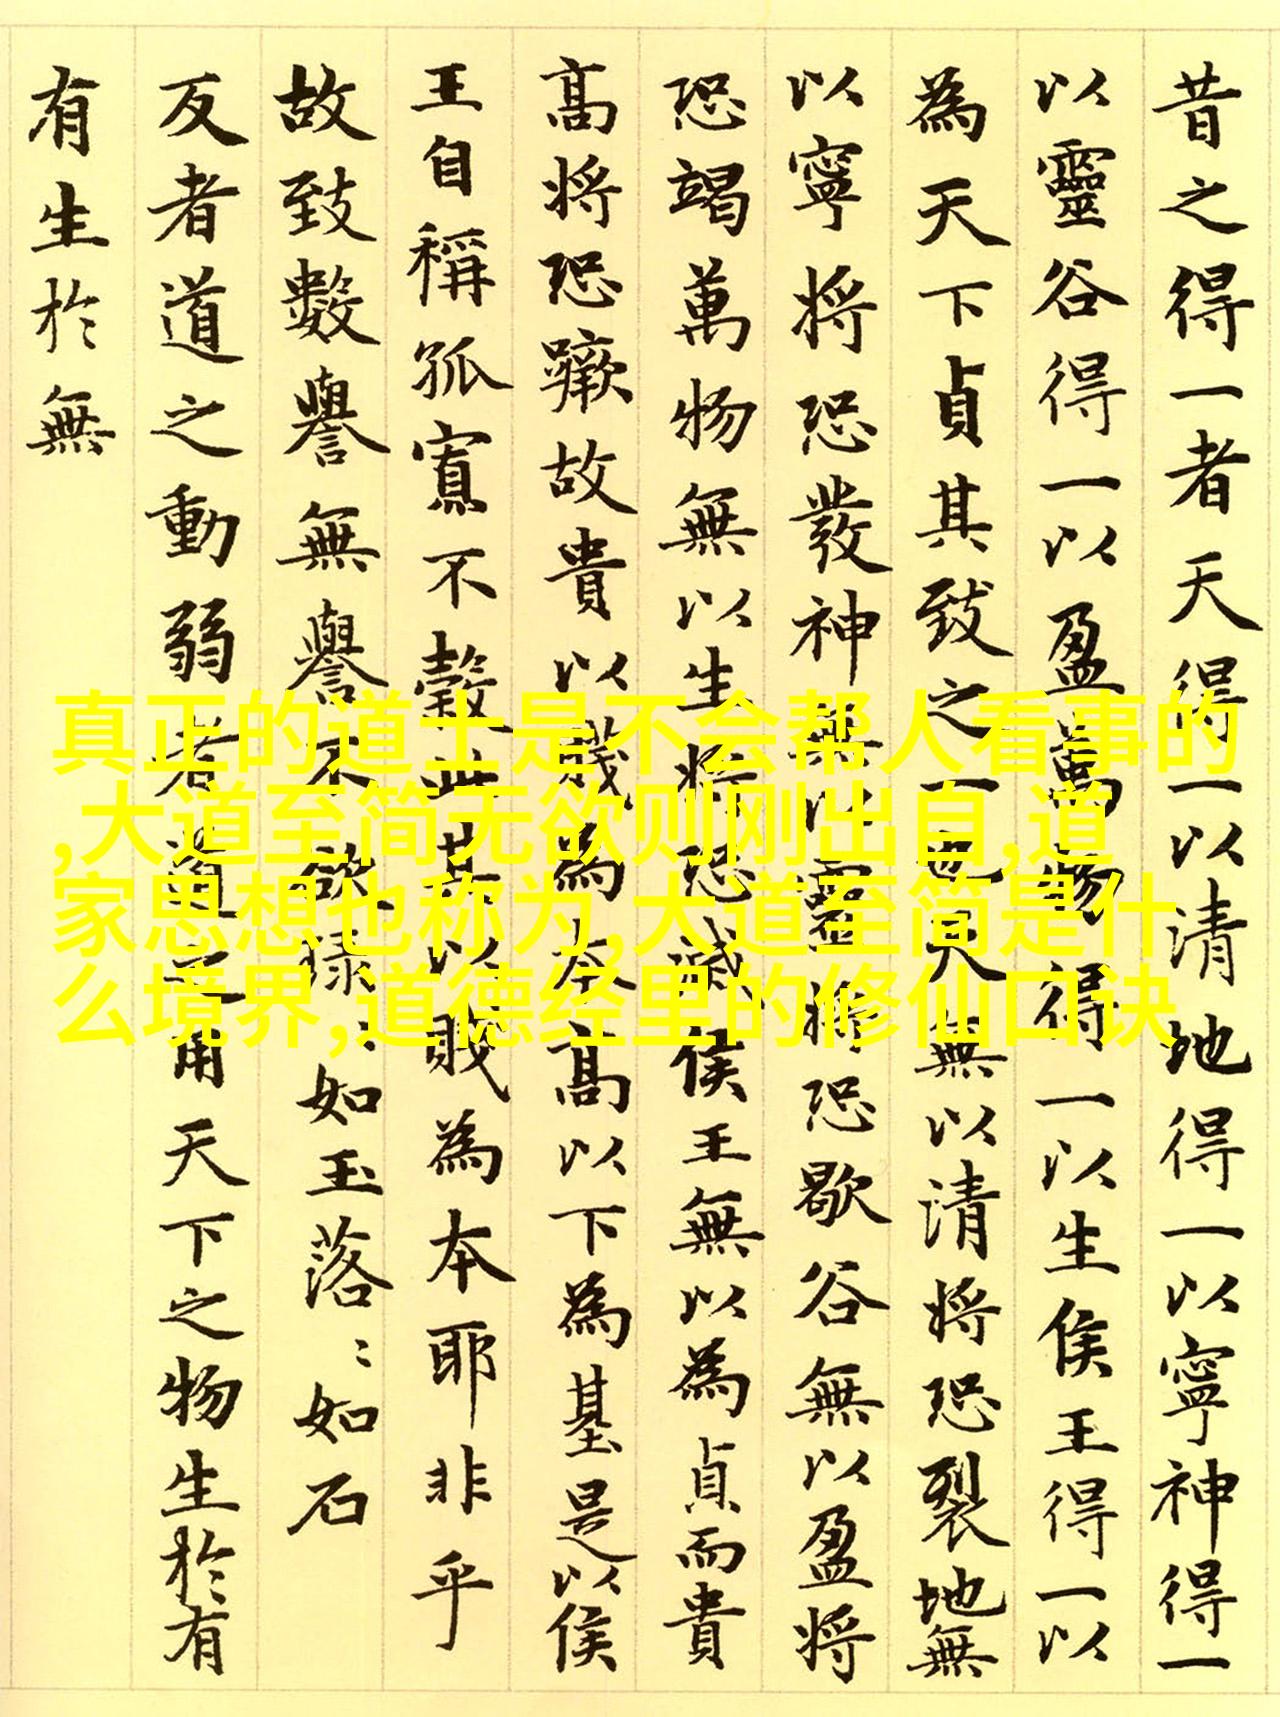 昔之得一者天得一以清地得一以寧神得一
以靈谷得一以盈萬物得一以生侯王得一以
為天下貞其致之一也天無以清將恐裂地無
以寧將恐發神無以靈將恐歇谷無以盈將
恐竭萬物無以生將恐滅侯王無以為貞而貴
高將恐蹶故貴以賤為本高以下為基是以侯
王自稱孤寡不穀此其以賤為本耶非乎
故致數譽無譽不欲琭〻如玉落〻如石
反者道之動弱者道之用天下之物生於有
有生於無
真正的道士是不会帮人看事的
,大道至简无欲则刚出自,道
家思想也称为,大道至简是什
么境界,道德经里的修仙口诀